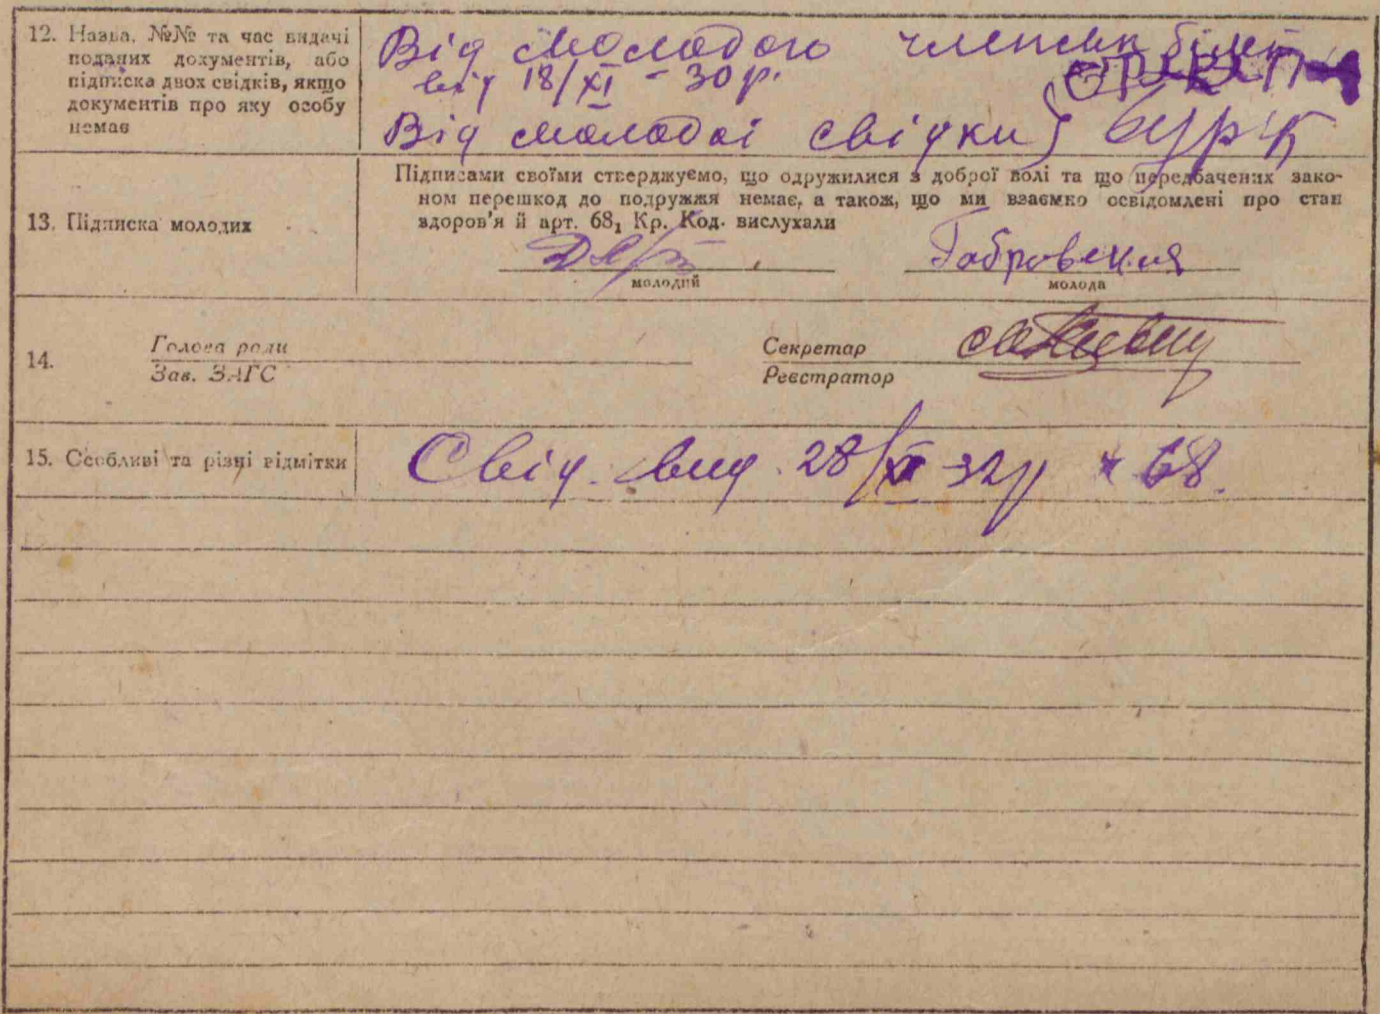 12. Назва, №№ та час видачі
поданих документів, або
підписка двох свідків, якщо
документів про яку особу
немає
Від молодого членськ білет
від 18/XI - 30 р.
Від молодої свідки
13. Підписка молодих
Підписами своїми стверджуємо, що одружилися з доброї волі та що передбачених зако-
ном перешкод до подружжя немає, а також, що ми взаємно освідомлені про стан
здоров'я й арт. 68₁ Кр. Код. вислухали
Бобровская
молодий молода
14.
Голова ради
Зав. ЗАГС
Секретар
Реєстратор
15. Особливі та різні відмітки
Свід. вид. 28/XI 32 р 68.